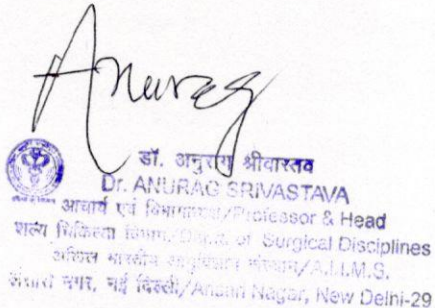 Anurag
डॉ. अनुराग श्रीवास्तव
Dr. ANURAG SRIVASTAVA
आचार्य एवं विभागाध्यक्ष/Professor & Head
शल्य चिकित्सा विभाग/Dept. of Surgical Disciplines
अखिल भारतीय आयुर्विज्ञान संस्थान/A.I.I.M.S.
अंसारी नगर, नई दिल्ली/Ansari Nagar, New Delhi-29